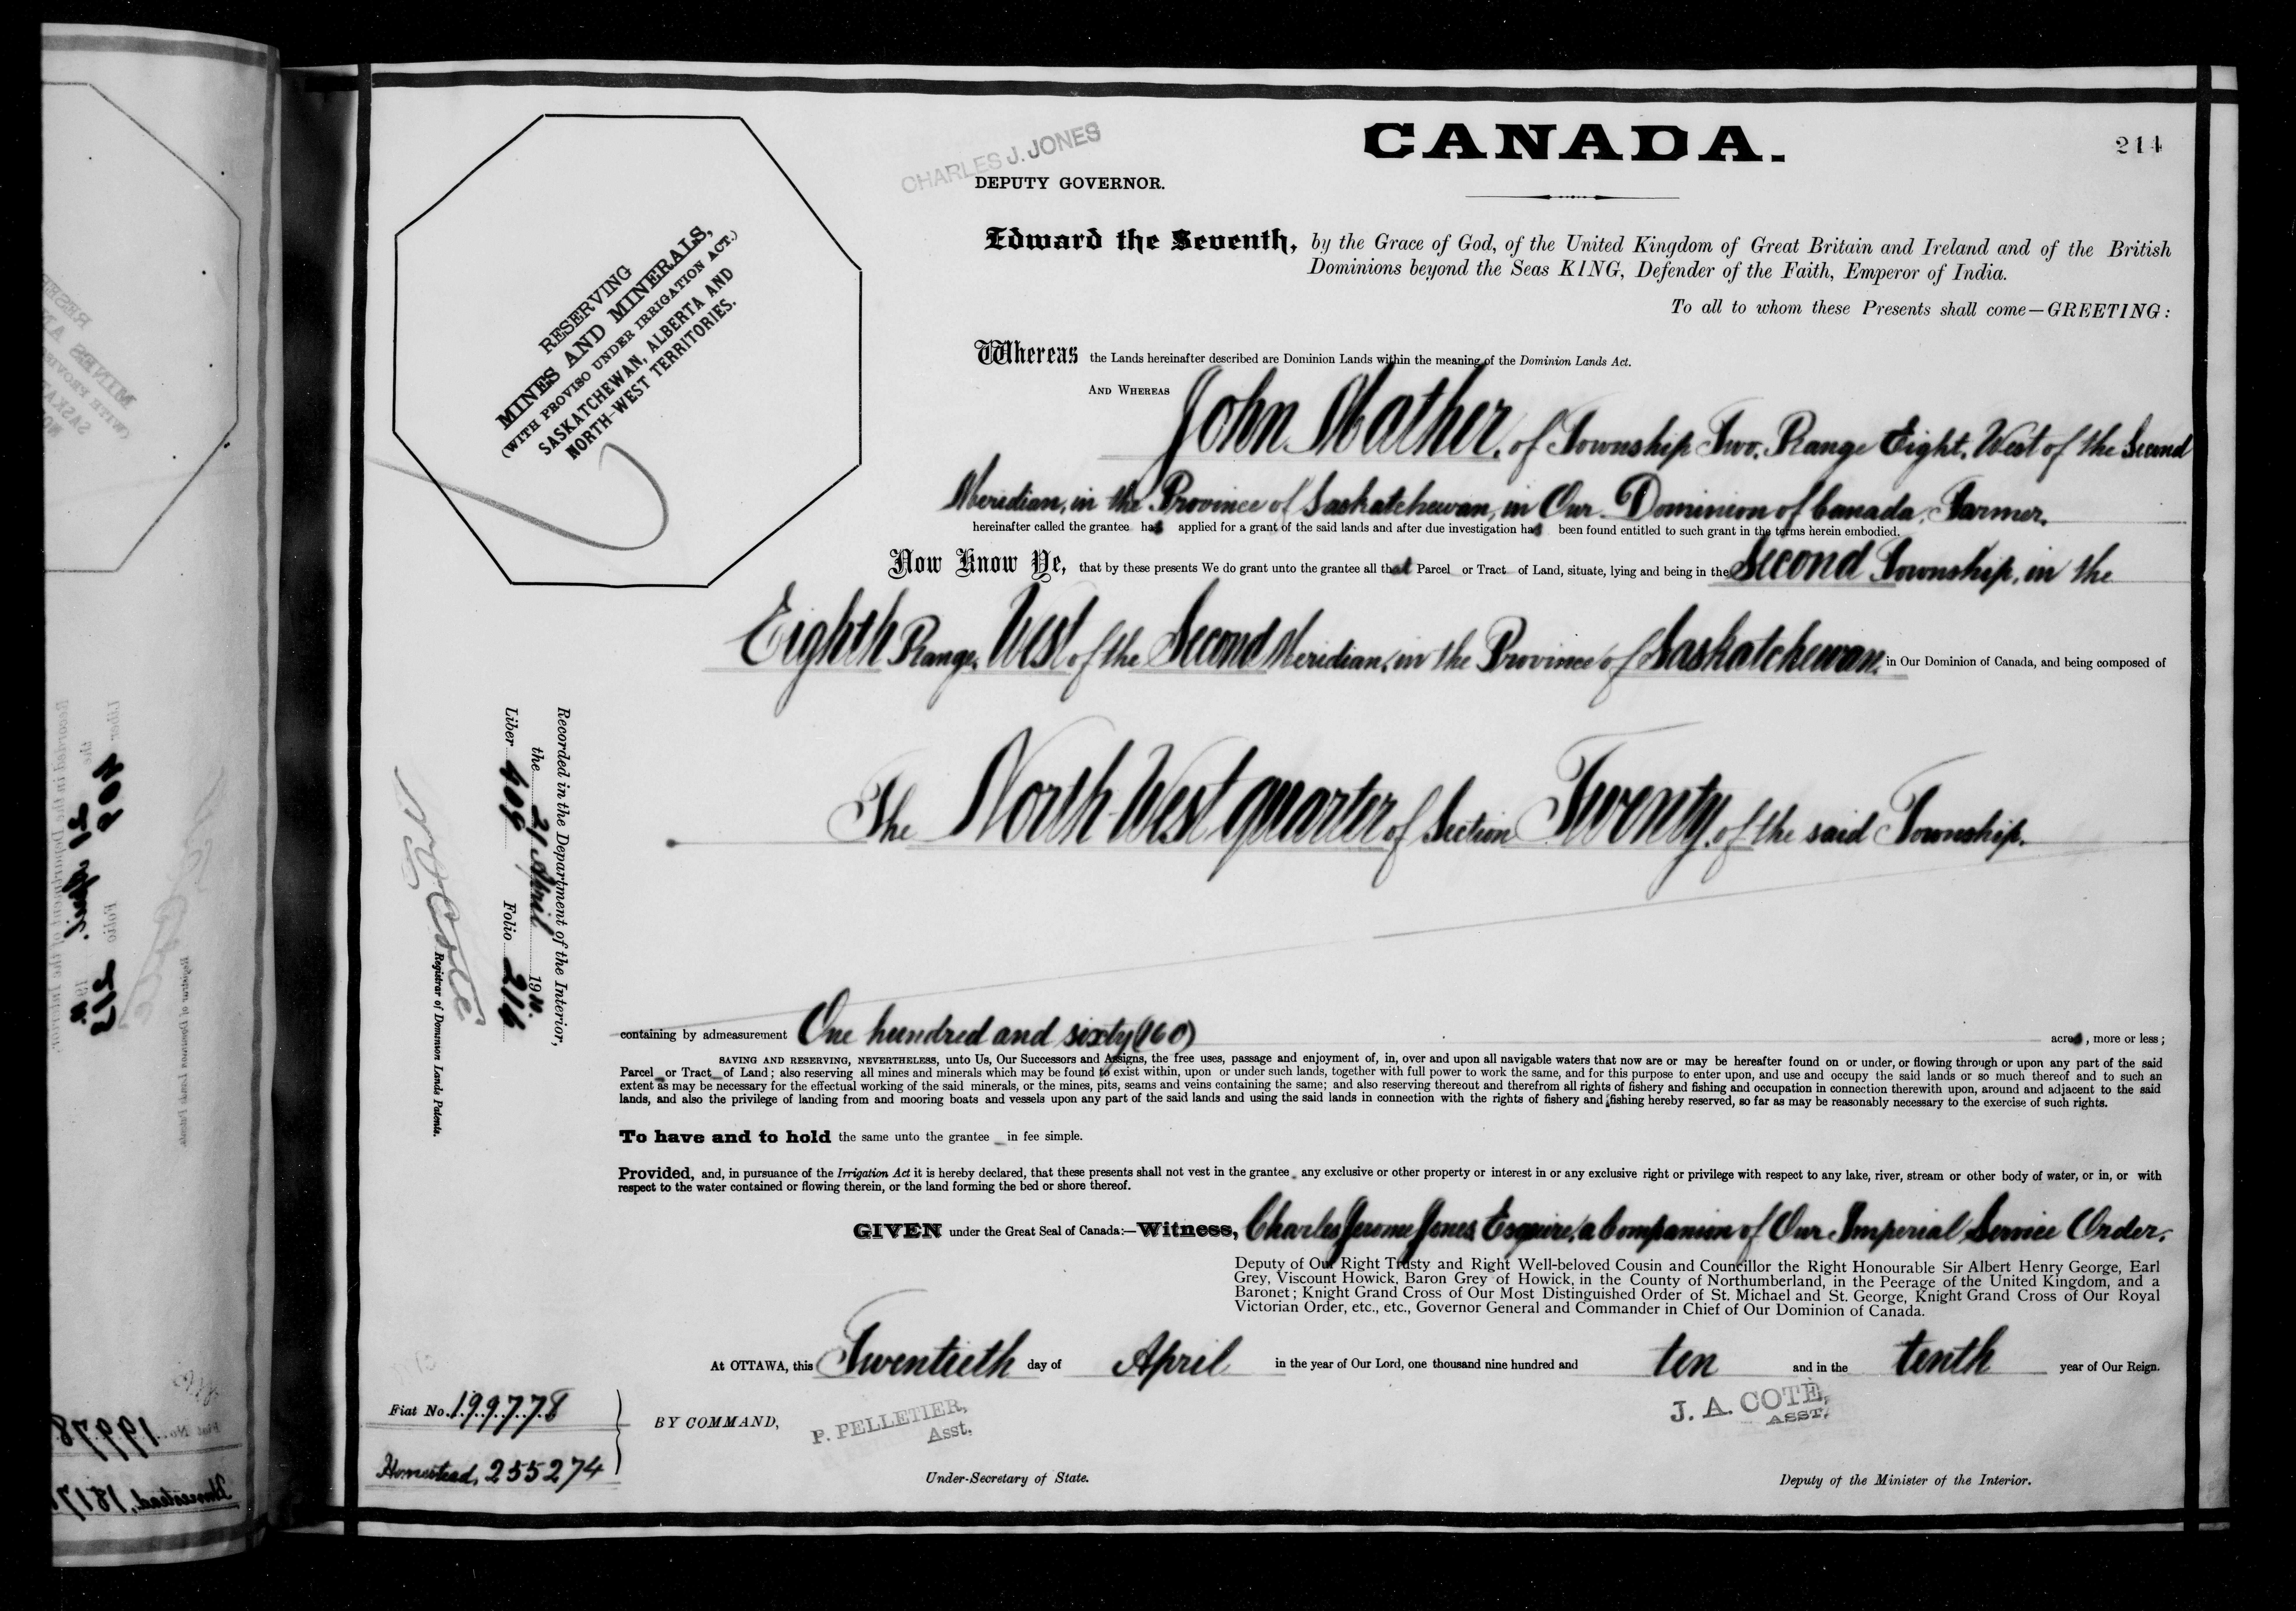 CHARLES J. JONES
DEPUTY GOVERNOR.
CANADA.
214
RESERVING
MINES AND MINERALS,
(WITH PROVISO UNDER IRRIGATION ACT.)
SASKATCHEWAN, ALBERTA AND
NORTH-WEST TERRITORIES.
Edward the Seventh, by the Grace of God, of the United Kingdom of Great Britain and Ireland and of the British
Dominions beyond the Seas KING, Defender of the Faith, Emperor of India.
To all to whom these Presents shall come—GREETING:
Whereas the Lands hereinafter described are Dominion Lands within the meaning of the Dominion Lands Act.
AND WHEREAS
John Mather, of Township Two, Range Eight, West of the Second
Meridian, in the Province of Saskatchewan, in Our Dominion of Canada, Farmer,
hereinafter called the grantee has applied for a grant of the said lands and after due investigation has been found entitled to such grant in the terms herein embodied.
Now Know Ye, that by these presents We do grant unto the grantee all that Parcel or Tract of Land, situate, lying and being in the Second Township, in the
Eighth Range, West of the Second Meridian, in the Province of Saskatchewan, in Our Dominion of Canada, and being composed of
The North West quarter of Section Twenty, of the said Township.
Recorded in the Department of the Interior,
the 21 April 1910.
Liber 409 Folio 216
Registrar of Dominion Lands Patents.
containing by admeasurement One hundred and sixty (160) acres, more or less;
SAVING AND RESERVING, NEVERTHELESS, unto Us, Our Successors and Assigns, the free uses, passage and enjoyment of, in, over and upon all navigable waters that now are or may be hereafter found on or under, or flowing through or upon any part of the said
Parcel or Tract of Land; also reserving all mines and minerals which may be found to exist within, upon or under such lands, together with full power to work the same, and for this purpose to enter upon, and use and occupy the said lands or so much thereof and to such an
extent as may be necessary for the effectual working of the said minerals, or the mines, pits, seams and veins containing the same; and also reserving thereout and therefrom all rights of fishery and fishing and occupation in connection therewith upon, around and adjacent to the said
lands, and also the privilege of landing from and mooring boats and vessels upon any part of the said lands and using the said lands in connection with the rights of fishery and fishing hereby reserved, so far as may be reasonably necessary to the exercise of such rights.
To have and to hold the same unto the grantee in fee simple.
Provided, and, in pursuance of the Irrigation Act it is hereby declared, that these presents shall not vest in the grantee any exclusive or other property or interest in or any exclusive right or privilege with respect to any lake, river, stream or other body of water, or in, or with
respect to the water contained or flowing therein, or the land forming the bed or shore thereof.
GIVEN under the Great Seal of Canada:—Witness, Charles Jerome Jones Esquire, a Companion of Our Imperial Service Order,
Deputy of Our Right Trusty and Right Well-beloved Cousin and Councillor the Right Honourable Sir Albert Henry George, Earl
Grey, Viscount Howick, Baron Grey of Howick, in the County of Northumberland, in the Peerage of the United Kingdom, and a
Baronet; Knight Grand Cross of Our Most Distinguished Order of St. Michael and St. George, Knight Grand Cross of Our Royal
Victorian Order, etc., etc., Governor General and Commander in Chief of Our Dominion of Canada.
At OTTAWA, this Twentieth day of April in the year of Our Lord, one thousand nine hundred and ten and in the tenth year of Our Reign.
Fiat No. 199778
Homestead, 255274
BY COMMAND,
P. PELLETIER,
Asst.
Under-Secretary of State.
J. A. COTÉ,
ASST.
Deputy of the Minister of the Interior.